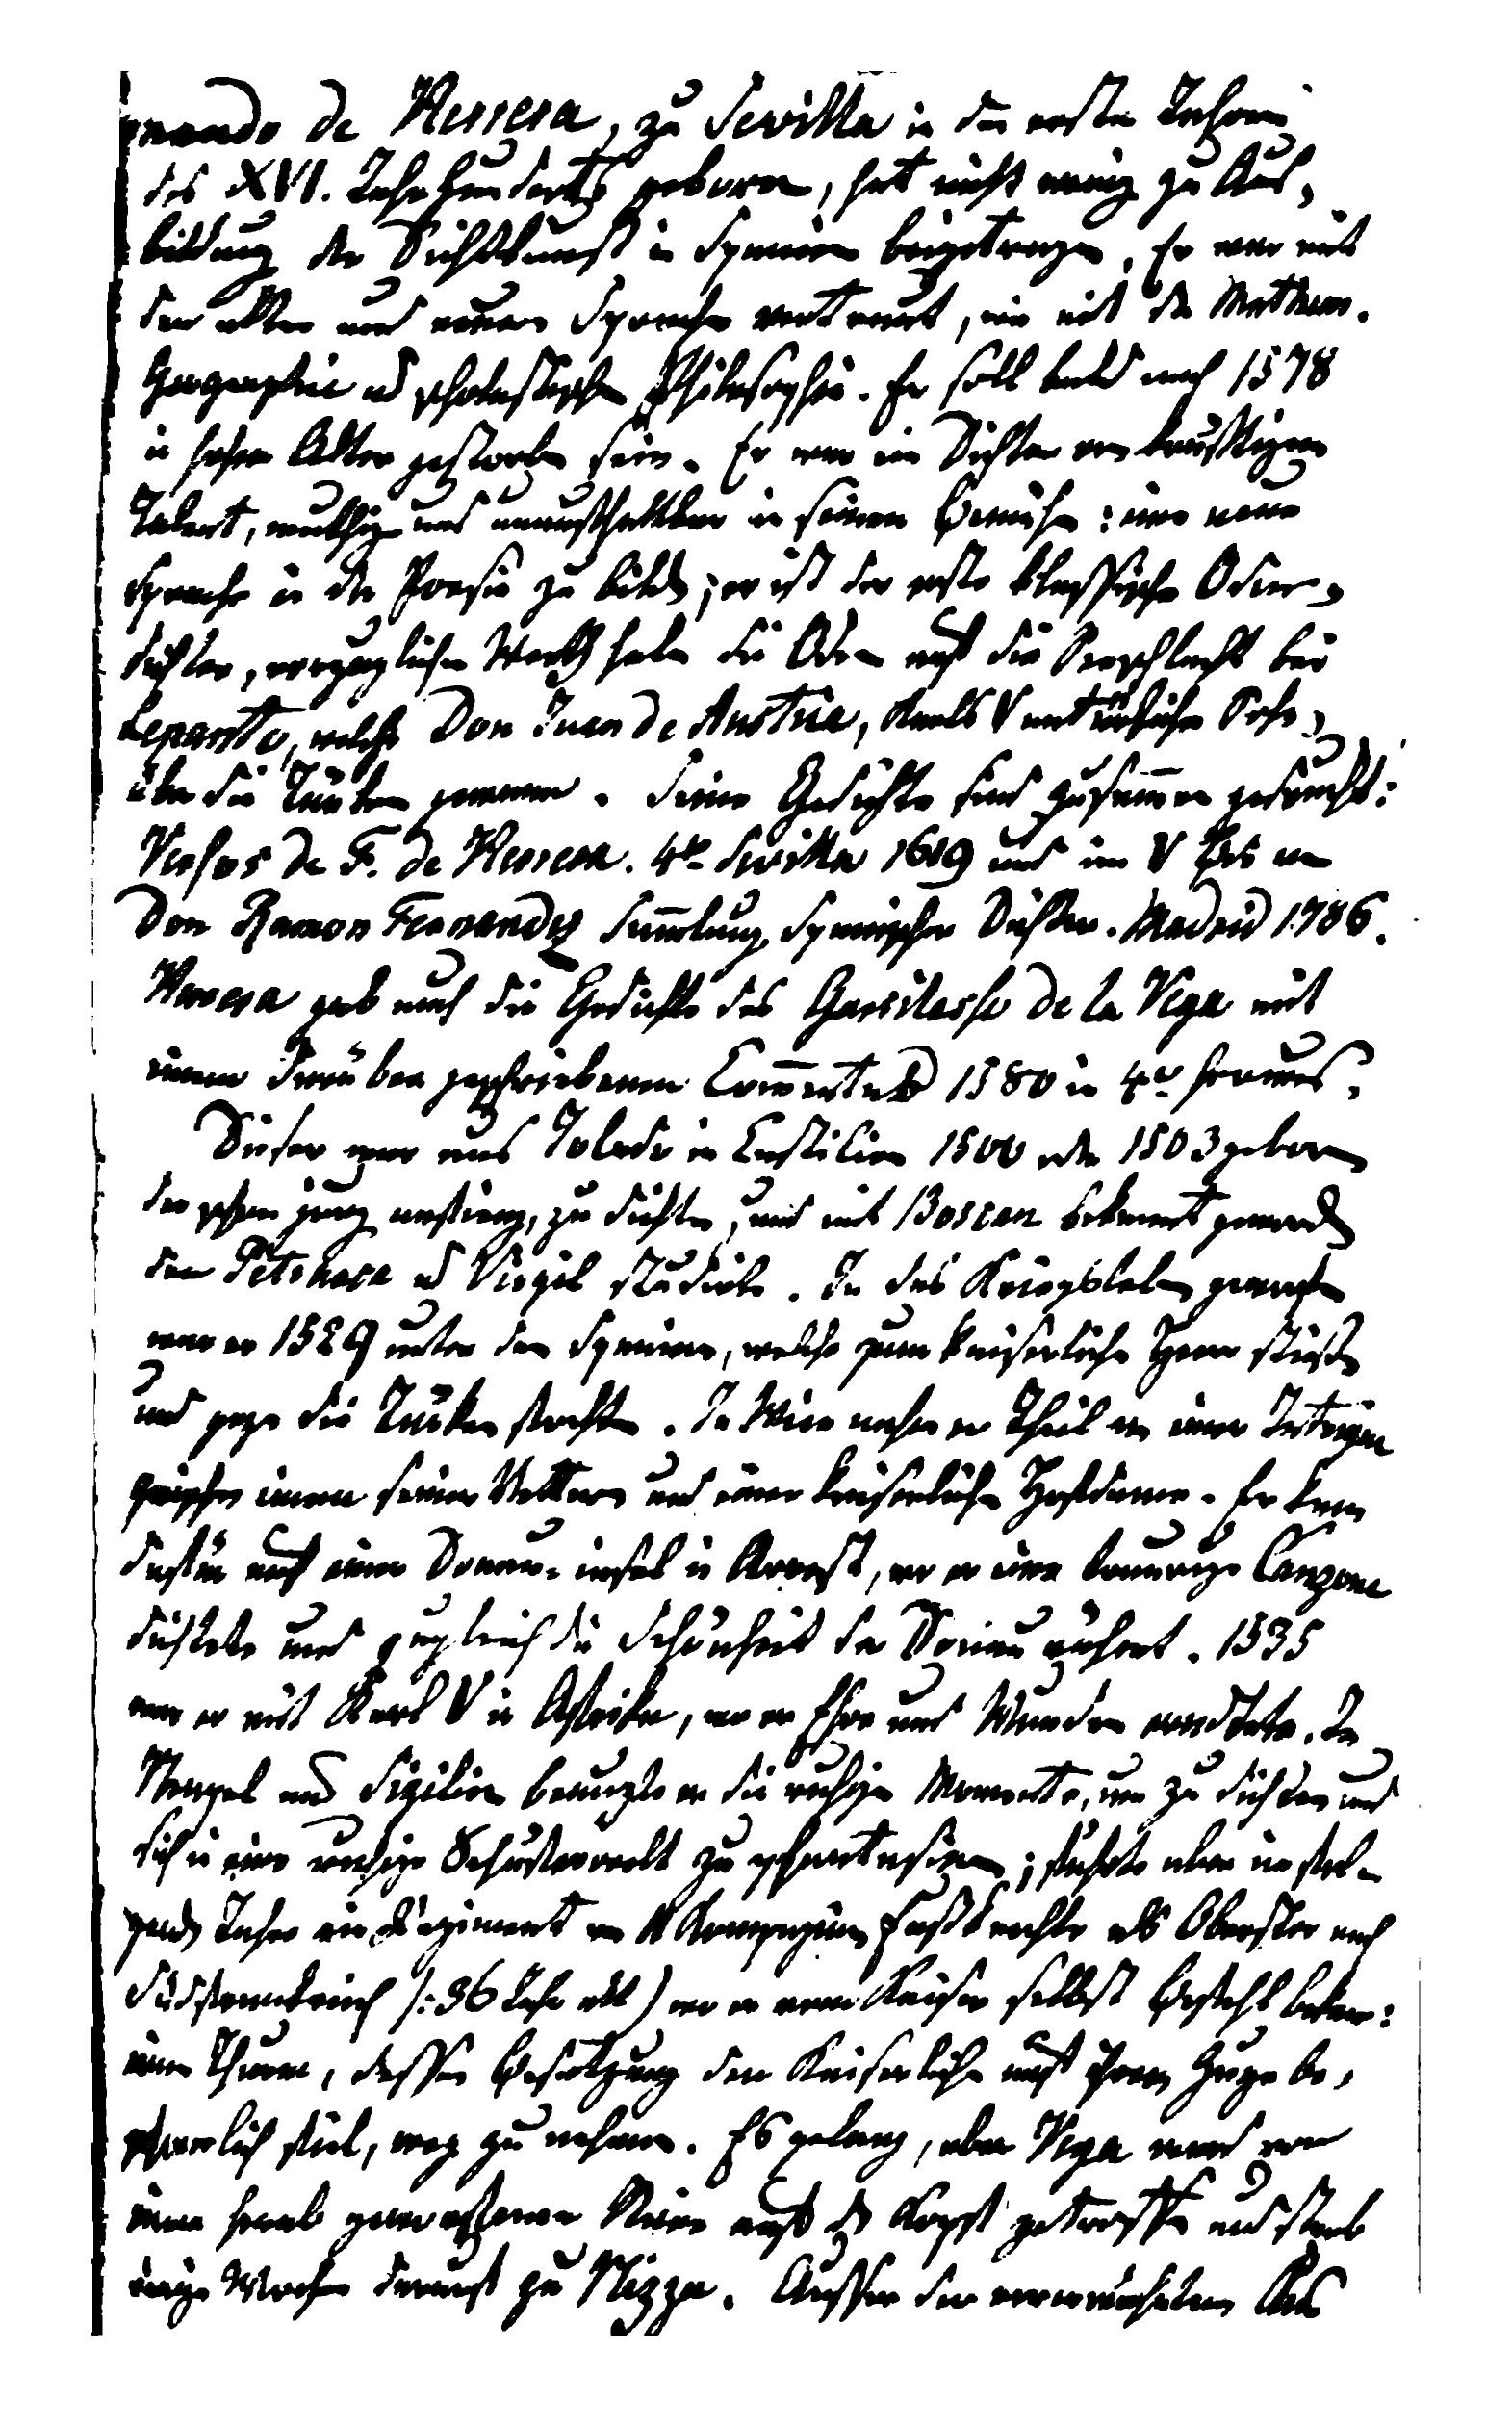 nando de Herrera, zu Sevilla in den ersten Jahren
des XVI. Jahrhunderts geboren, hat nicht wenig zu Aus-
bildung der Dichtkunst in Spanien beigetragen. Er war mit
den alten und neuern Sprachen vertraut, wie mit der Mathem.
Geographie und scholastischen Philosophie. Er soll bald nach 1578
in hohem Alter gestorben sein. Er war ein Dichter von kräftigem
Talent, muthig und unaufhaltbar in seinem Bemühen: eine neue
Sprache in der Poesie zu bilden; er ist der erste klassische Oden-
dichter, vorzüglichen Werth haben die Oden auf die Seeschlacht bei
Lepanto, welche Don Juan de Austria, Karls V natürlicher Sohn,
über die Türken gewann. Seine Gedichte sind zusammen gedruckt:
Versos de F. de Herrera. 4to Sevilla 1619 und im V Ths von
Don Ramon Fernandez Sammlung Spanischer Dichter. Madrid 1786.
Herrera gab auch die Gedichte des Garcilasso de la Vega mit
einem darüber geschriebenen Commentar 1580 in 4to heraus.
Dieser war aus Toledo in Castilien 1500 oder 1503 geboren
der schon jung anfieng, zu dichten, und mit Boscan bekannt geworden
den Petrarca und Virgil studirte. In das Kriegsleben geworfen
war er 1529 unter den Spaniern, welche zum kaiserlichen Heere stießen
und gegen die Türken fochten. In Wien nahm er Theil an einer Intrigue
zwischen einem seiner Vettern und einer kaiserlichen Hofdame. Er kam
dafür auf eine Donau-insel in Arrest, wo er eine traurige Canzone
dichtete und zugleich die Schönheit der Donau rühmt. 1535
war er mit Karl V in Afrika, wo er Ehre und Wunden erndtete. In
Neapel und Sizilien benuzte er die ruhigen Momente, um zu dichten und
sich in eine ruhige Schäferwelt zu phantasiren; führte aber im fol-
genden Jahre ein Regiment von 11 Kompagnien Fußknechte als Oberster nach
Südfrankreich /:36 Jahr alt) wo er vom Kaiser selbst Befehl bekam:
einen Thurm, dessen Besatzung den Kaiserlichen auf ihrem Zuge be-
schwerlich fiel, weg zu nehmen. Es gelang, aber Vega ward von
einem herab geworfenen Steine auf den Kopf getroffen und starb
einige Wochen darauf zu Nizza. Ausser der verwünschten